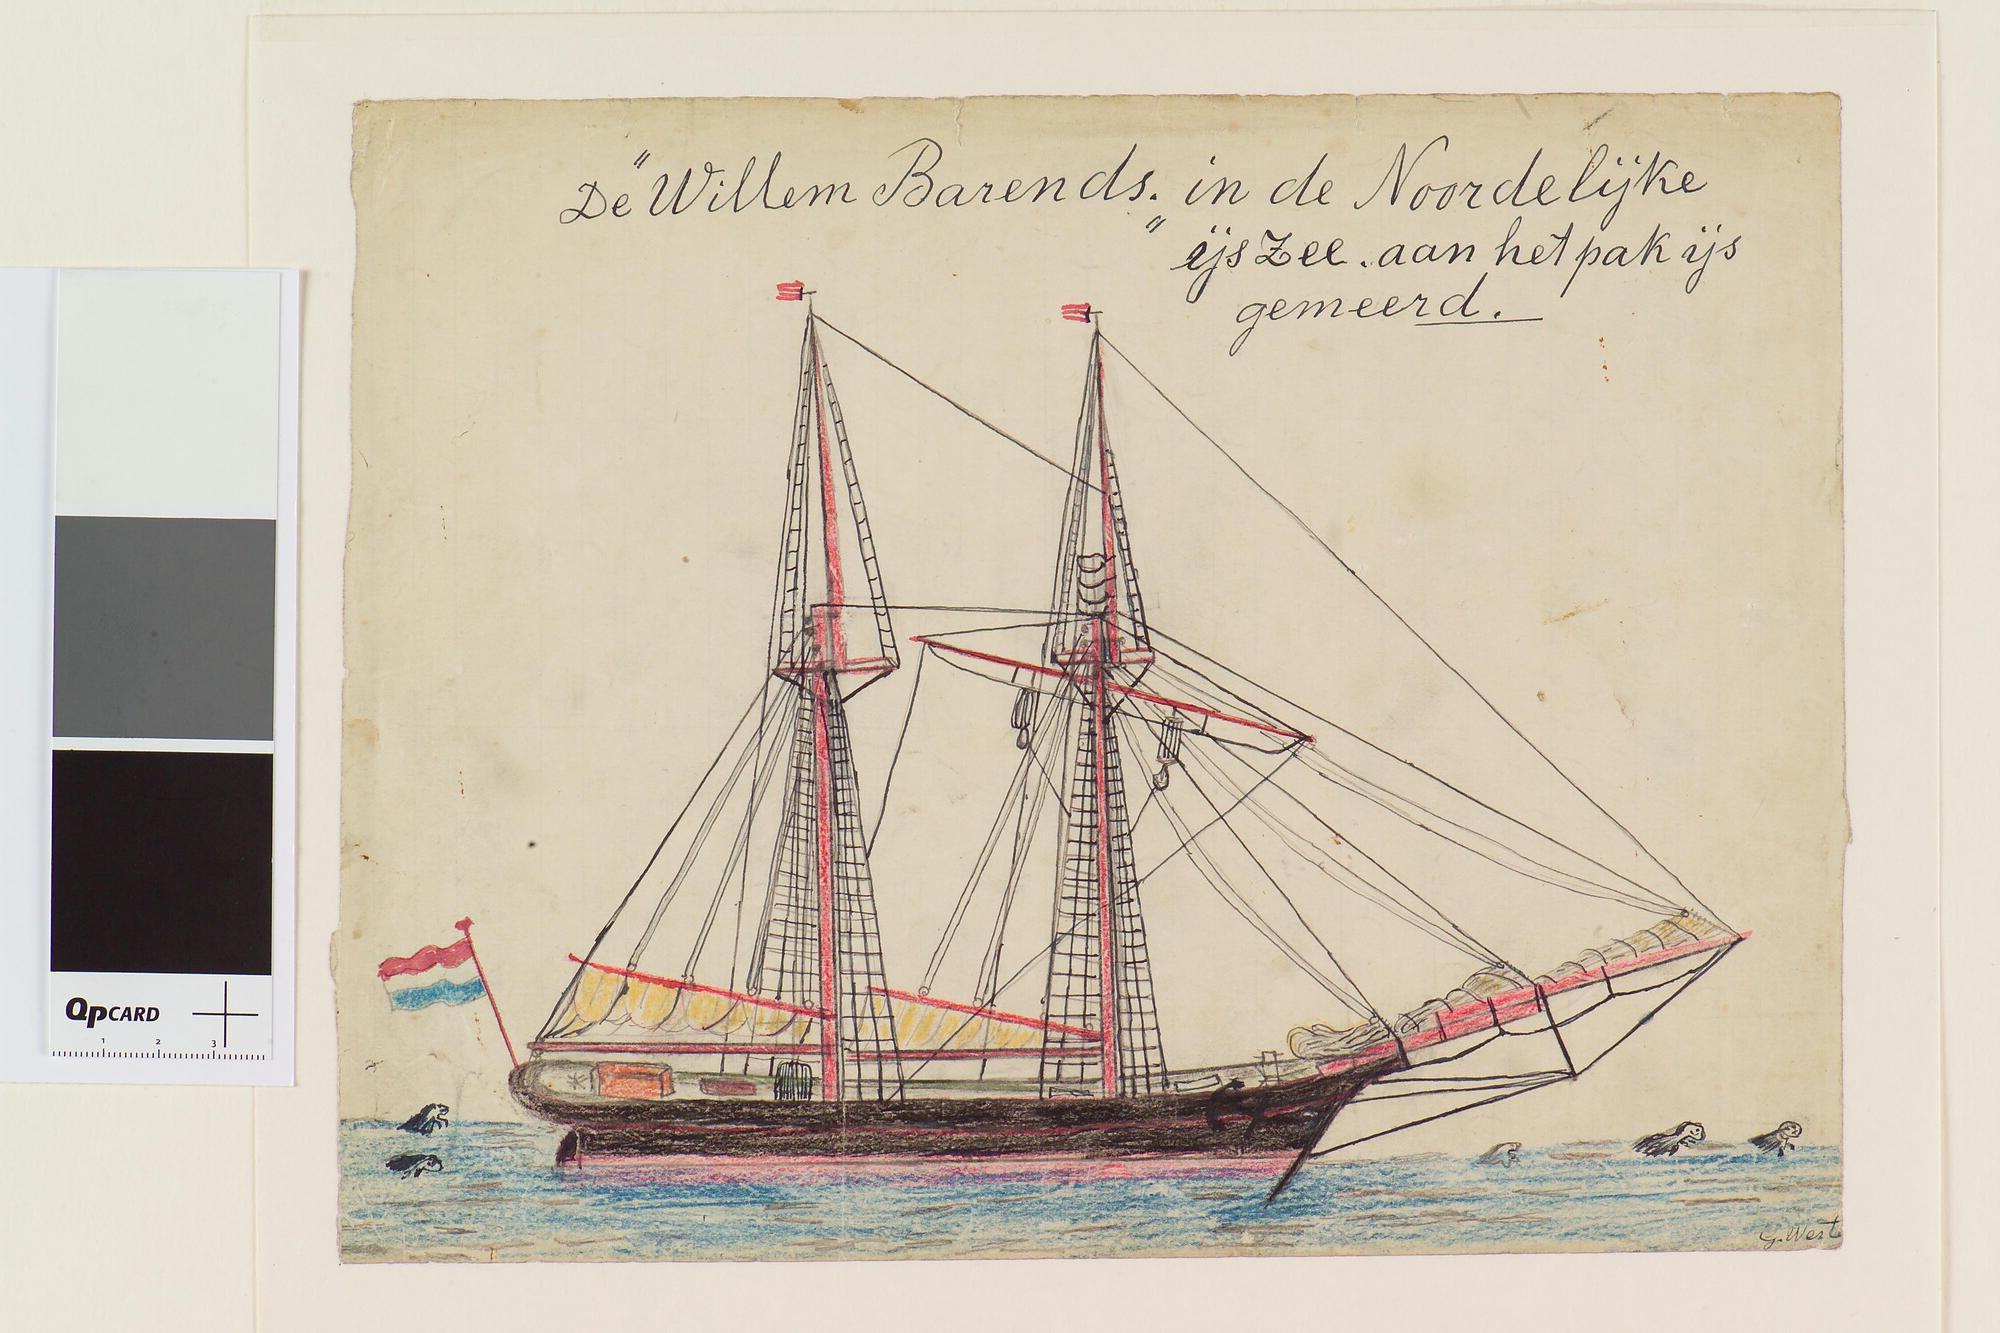 De "Willem Barends." in de Noordelijke
ijs Zee. aan het pak ijs
gemeerd.
G. West
QPCARD
1 2 3